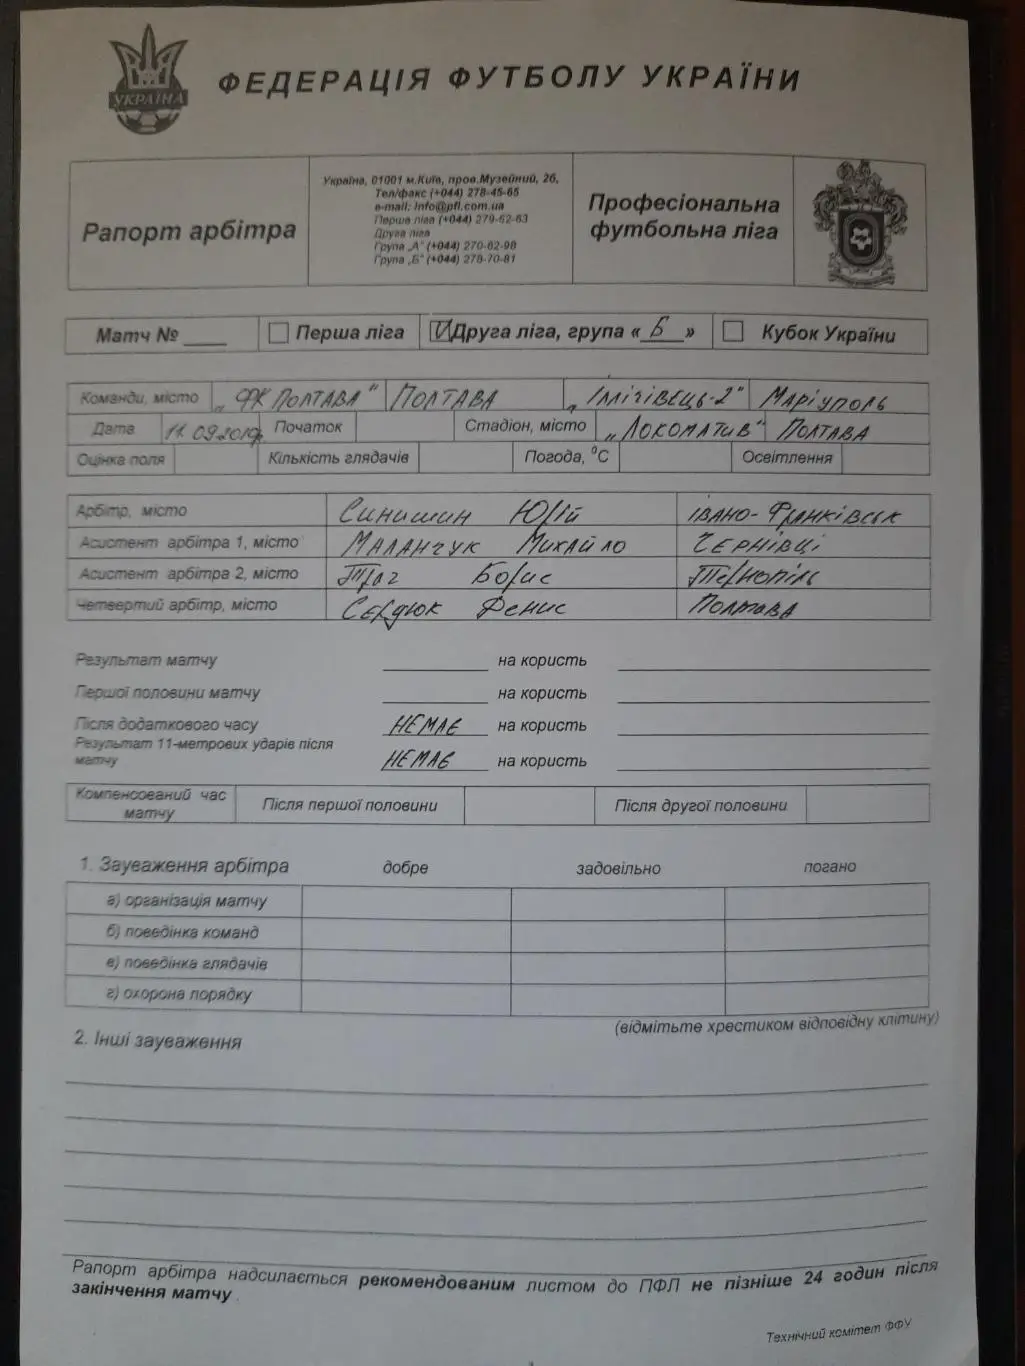 УКРАЇНА
ФЕДЕРАЦІЯ ФУТБОЛУ УКРАЇНИ
Рапорт арбітра
Україна, 01001 м.Київ, пров.Музейний, 2б,
Тел/факс (+044) 278-45-65
e-mail: info@pfl.com.ua
Перша ліга (+044) 279-62-63
Друга ліга
Група „А" (+044) 270-62-98
Група „Б" (+044) 278-70-81
Професіональна
футбольна ліга
Матч № ____ Перша ліга Друга ліга, група « Б » Кубок України
Команди, місто „ФК ПОЛТАВА" ПОЛТАВА „Іллічівець-2" МАРІУПОЛЬ
Дата 11.09.2010р. Початок Стадіон, місто „ЛОКОМАТИВ" ПОЛТАВА
Оцінка поля Кількість глядачів Погода, °С Освітлення
Арбітр, місто Синишин Юрій ІВАНО-ФРАНКІВСЬК
Асистент арбітра 1, місто МАЛАНЧУК МИХАЙЛО ЧЕРНІВЦІ
Асистент арбітра 2, місто Траг Борис Тернопіль
Четвертий арбітр, місто Сердюк Денис Полтава
Результат матчу ____ на користь ____
Першої половини матчу ____ на користь ____
Після додаткового часу НЕМАЄ на користь ____
Результат 11-метрових ударів після
матчу НЕМАЄ на користь ____
Компенсований час
матчу
Після першої половини Після другої половини
1. Зауваження арбітра добре задовільно погано
а) організація матчу
б) поведінка команд
в) поведінка глядачів
г) охорона порядку
(відмітьте хрестиком відповідну клітину)
2. Інші зауваження
Рапорт арбітра надсилається рекомендованим листом до ПФЛ не пізніше 24 годин після
закінчення матчу.
Технічний комітет ФФУ